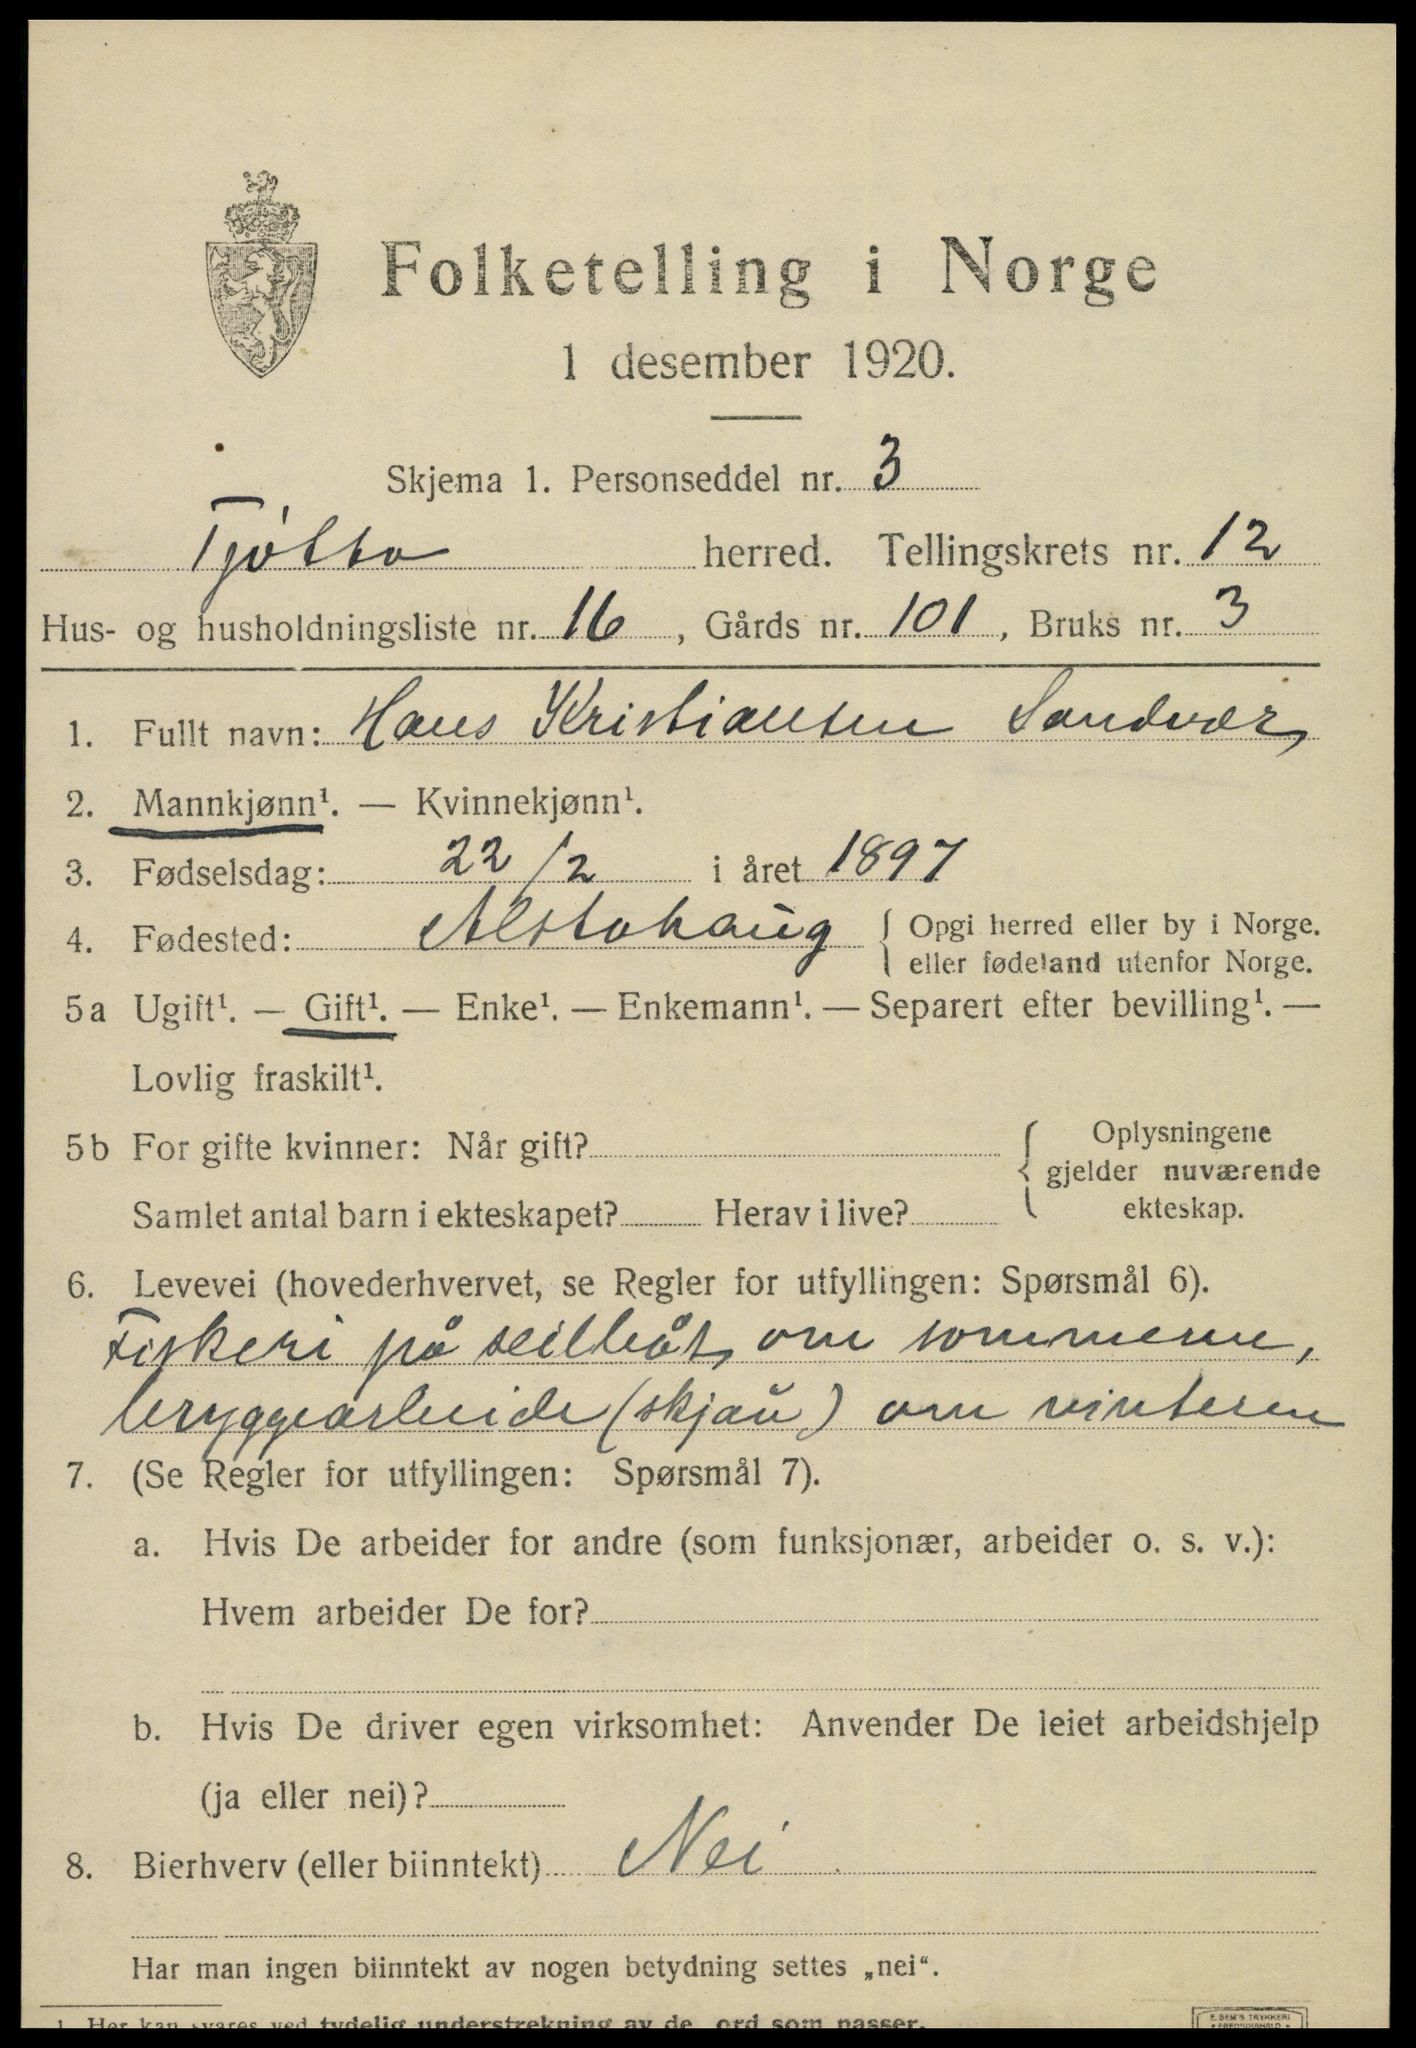 Folketelling i Norge
1 desember 1920.
Skjema 1. Personseddel nr. 3
Tjøtta herred. Tellingskrets nr. 12
Hus- og husholdningsliste nr. 16, Gårds nr. 101, Bruks nr. 3
1. Fullt navn: Hans Kristiansen Sandvær
2. Mannkjønn¹. — Kvinnekjønn¹.
3. Fødselsdag: 22/2 i året 1897
4. Fødested: Alstahaug { Opgi herred eller by i Norge.
eller fødeland utenfor Norge.
5a Ugift¹. — Gift¹. — Enke¹. — Enkemann¹. — Separert efter bevilling¹. —
Lovlig fraskilt¹.
5b For gifte kvinner: Når gift? { Oplysningene
gjelder nuværende
Samlet antal barn i ekteskapet? Herav i live? ekteskap.
6. Levevei (hovederhvervet, se Regler for utfyllingen: Spørsmål 6).
Fiskeri på seilbåt om sommeren,
bryggearbeide (skjau) om vinteren
7. (Se Regler for utfyllingen: Spørsmål 7).
a. Hvis De arbeider for andre (som funksjonær, arbeider o. s. v.):
Hvem arbeider De for?
b. Hvis De driver egen virksomhet: Anvender De leiet arbeidshjelp
(ja eller nei)?
8. Bierhverv (eller biinntekt) Nei
Har man ingen biinntekt av nogen betydning settes „nei“.
1 Her kan svares ved tydelig understrekning av de ord som passer.
E. SEM'S TRYKKERI
FREDRIKSHALD